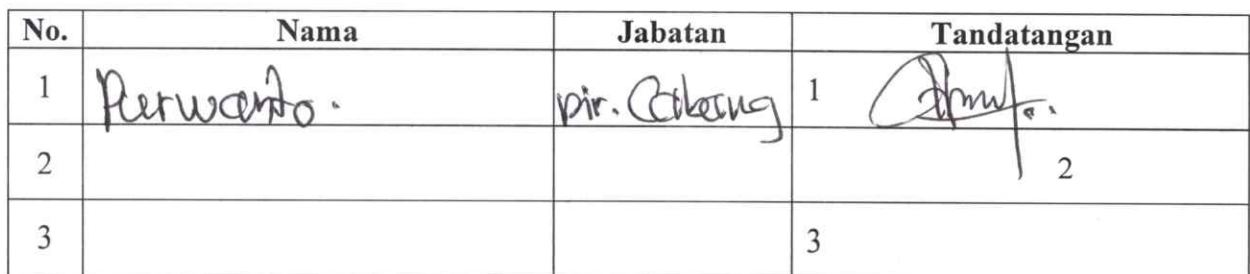 No. Nama Jabatan Tandatangan
1 Purwanto. Dir. Cabang 1
2 2
3 3